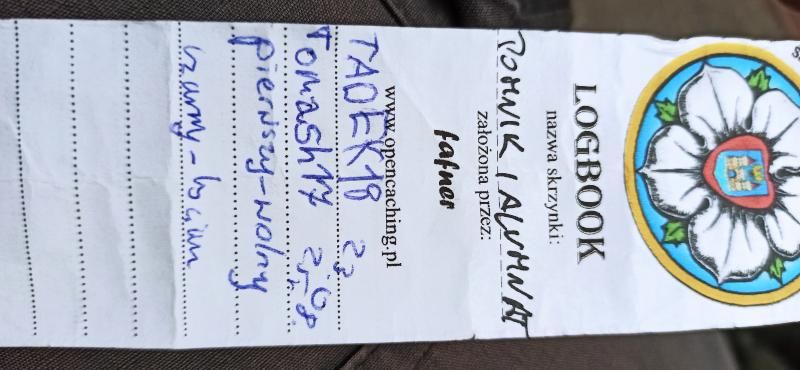 LOGBOOK
nazwa skrzynki:
POMNIK I ALUMNAT
założona przez:
fafner
www.opencaching.pl
TADEK18
Tomash17
pierwszy-wolny
czarny-bocian